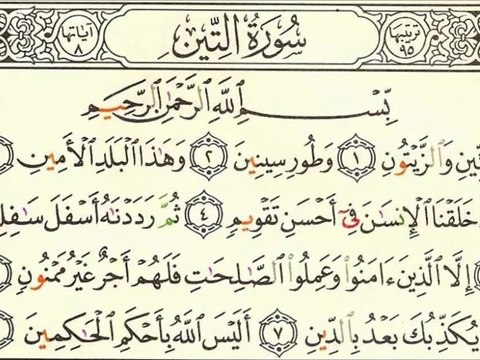 ترتيبها ٩٥ سُورَةُ التِّينِ آياتها ٨
بِسْمِ اللَّهِ الرَّحْمَٰنِ الرَّحِيمِ
وَالزَّيْتُونِ ١ وَطُورِ سِينِينَ ٢ وَهَٰذَا الْبَلَدِ الْأَمِينِ
خَلَقْنَا الْإِنسَٰنَ فِي أَحْسَنِ تَقْوِيمٍ ٤ ثُمَّ رَدَدْنَٰهُ أَسْفَلَ
إِلَّا الَّذِينَ ءَامَنُوا وَعَمِلُوا الصَّٰلِحَٰتِ فَلَهُمْ أَجْرٌ غَيْرُ مَمْنُونٍ
يُكَذِّبُكَ بَعْدُ بِالدِّينِ ٧ أَلَيْسَ اللَّهُ بِأَحْكَمِ الْحَٰكِمِينَ